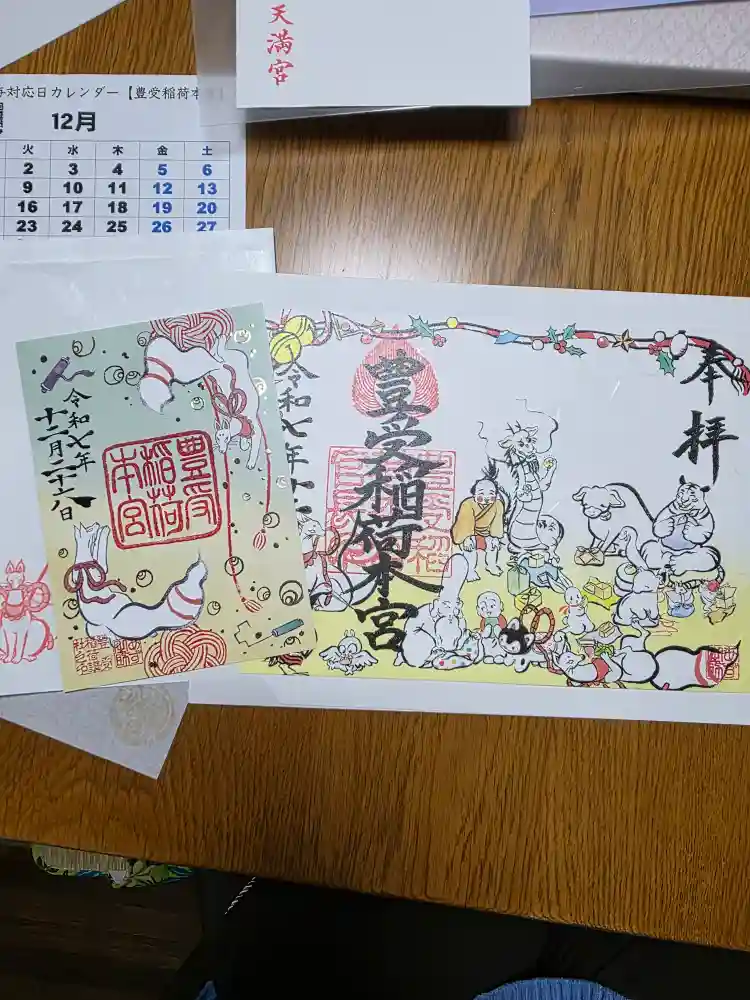 天満宮
対応日カレンダー【豊受稲荷本
12月
火 水 木 金 土
2 3 4 5 6
9 10 11 12 13
16 17 18 19 20
23 24 25 26 27
令和七年
十二月二十六日
豊受
稲荷
本宮
奉拝
豊受稲荷本宮
令和七年十